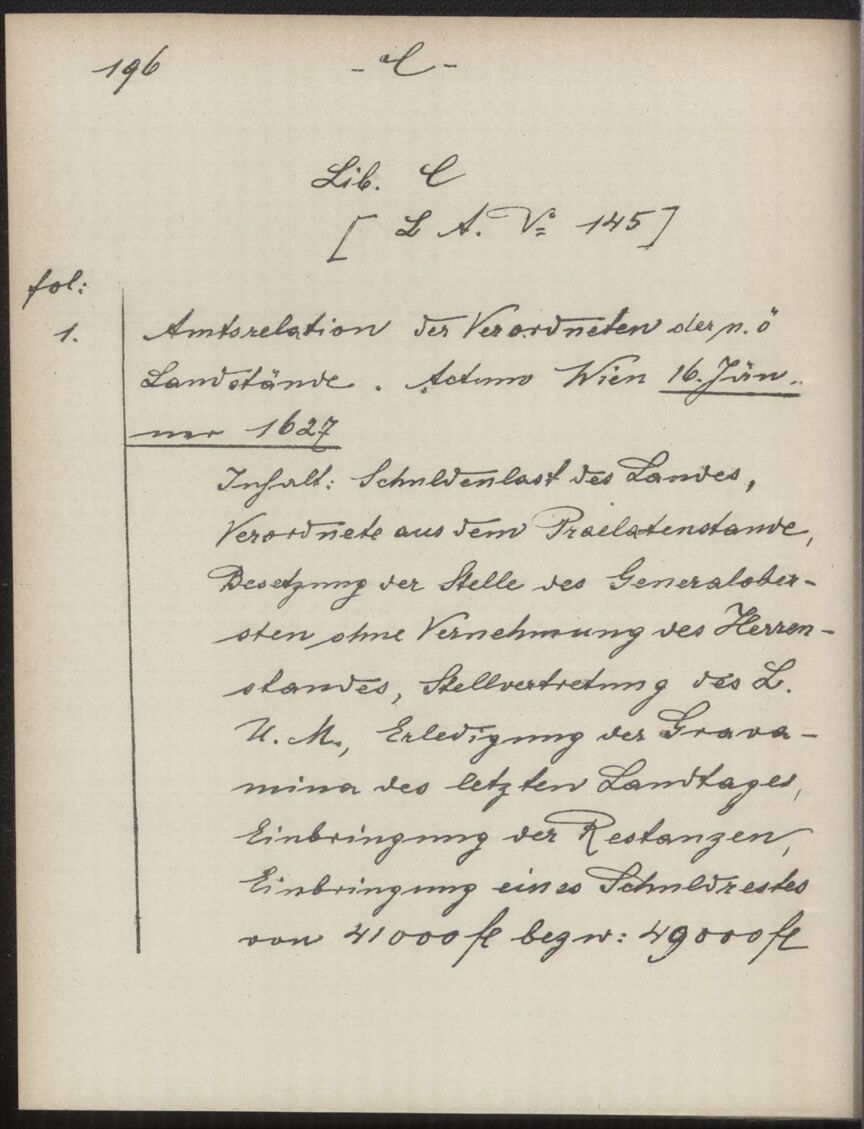 196
- C -
Lib. C
[ L A. V° 145 ]
fol:
1. Amtsrelation der Verordneten der n. ö
Landstände. Actum Wien 16. Jän-
ner 1627
Inhalt: Schuldenlast des Landes,
Verordnete aus dem Praelatenstande,
Besetzung der Stelle des Generalober-
sten ohne Vernehmung des Herren-
standes, Stellvertretung des L.
U. M., Erledigung der Grava-
mina des letzten Landtages,
Einbringung der Restanzen,
Einbringung eines Schuldrestes
von 41000 fl bezw: 49000 fl